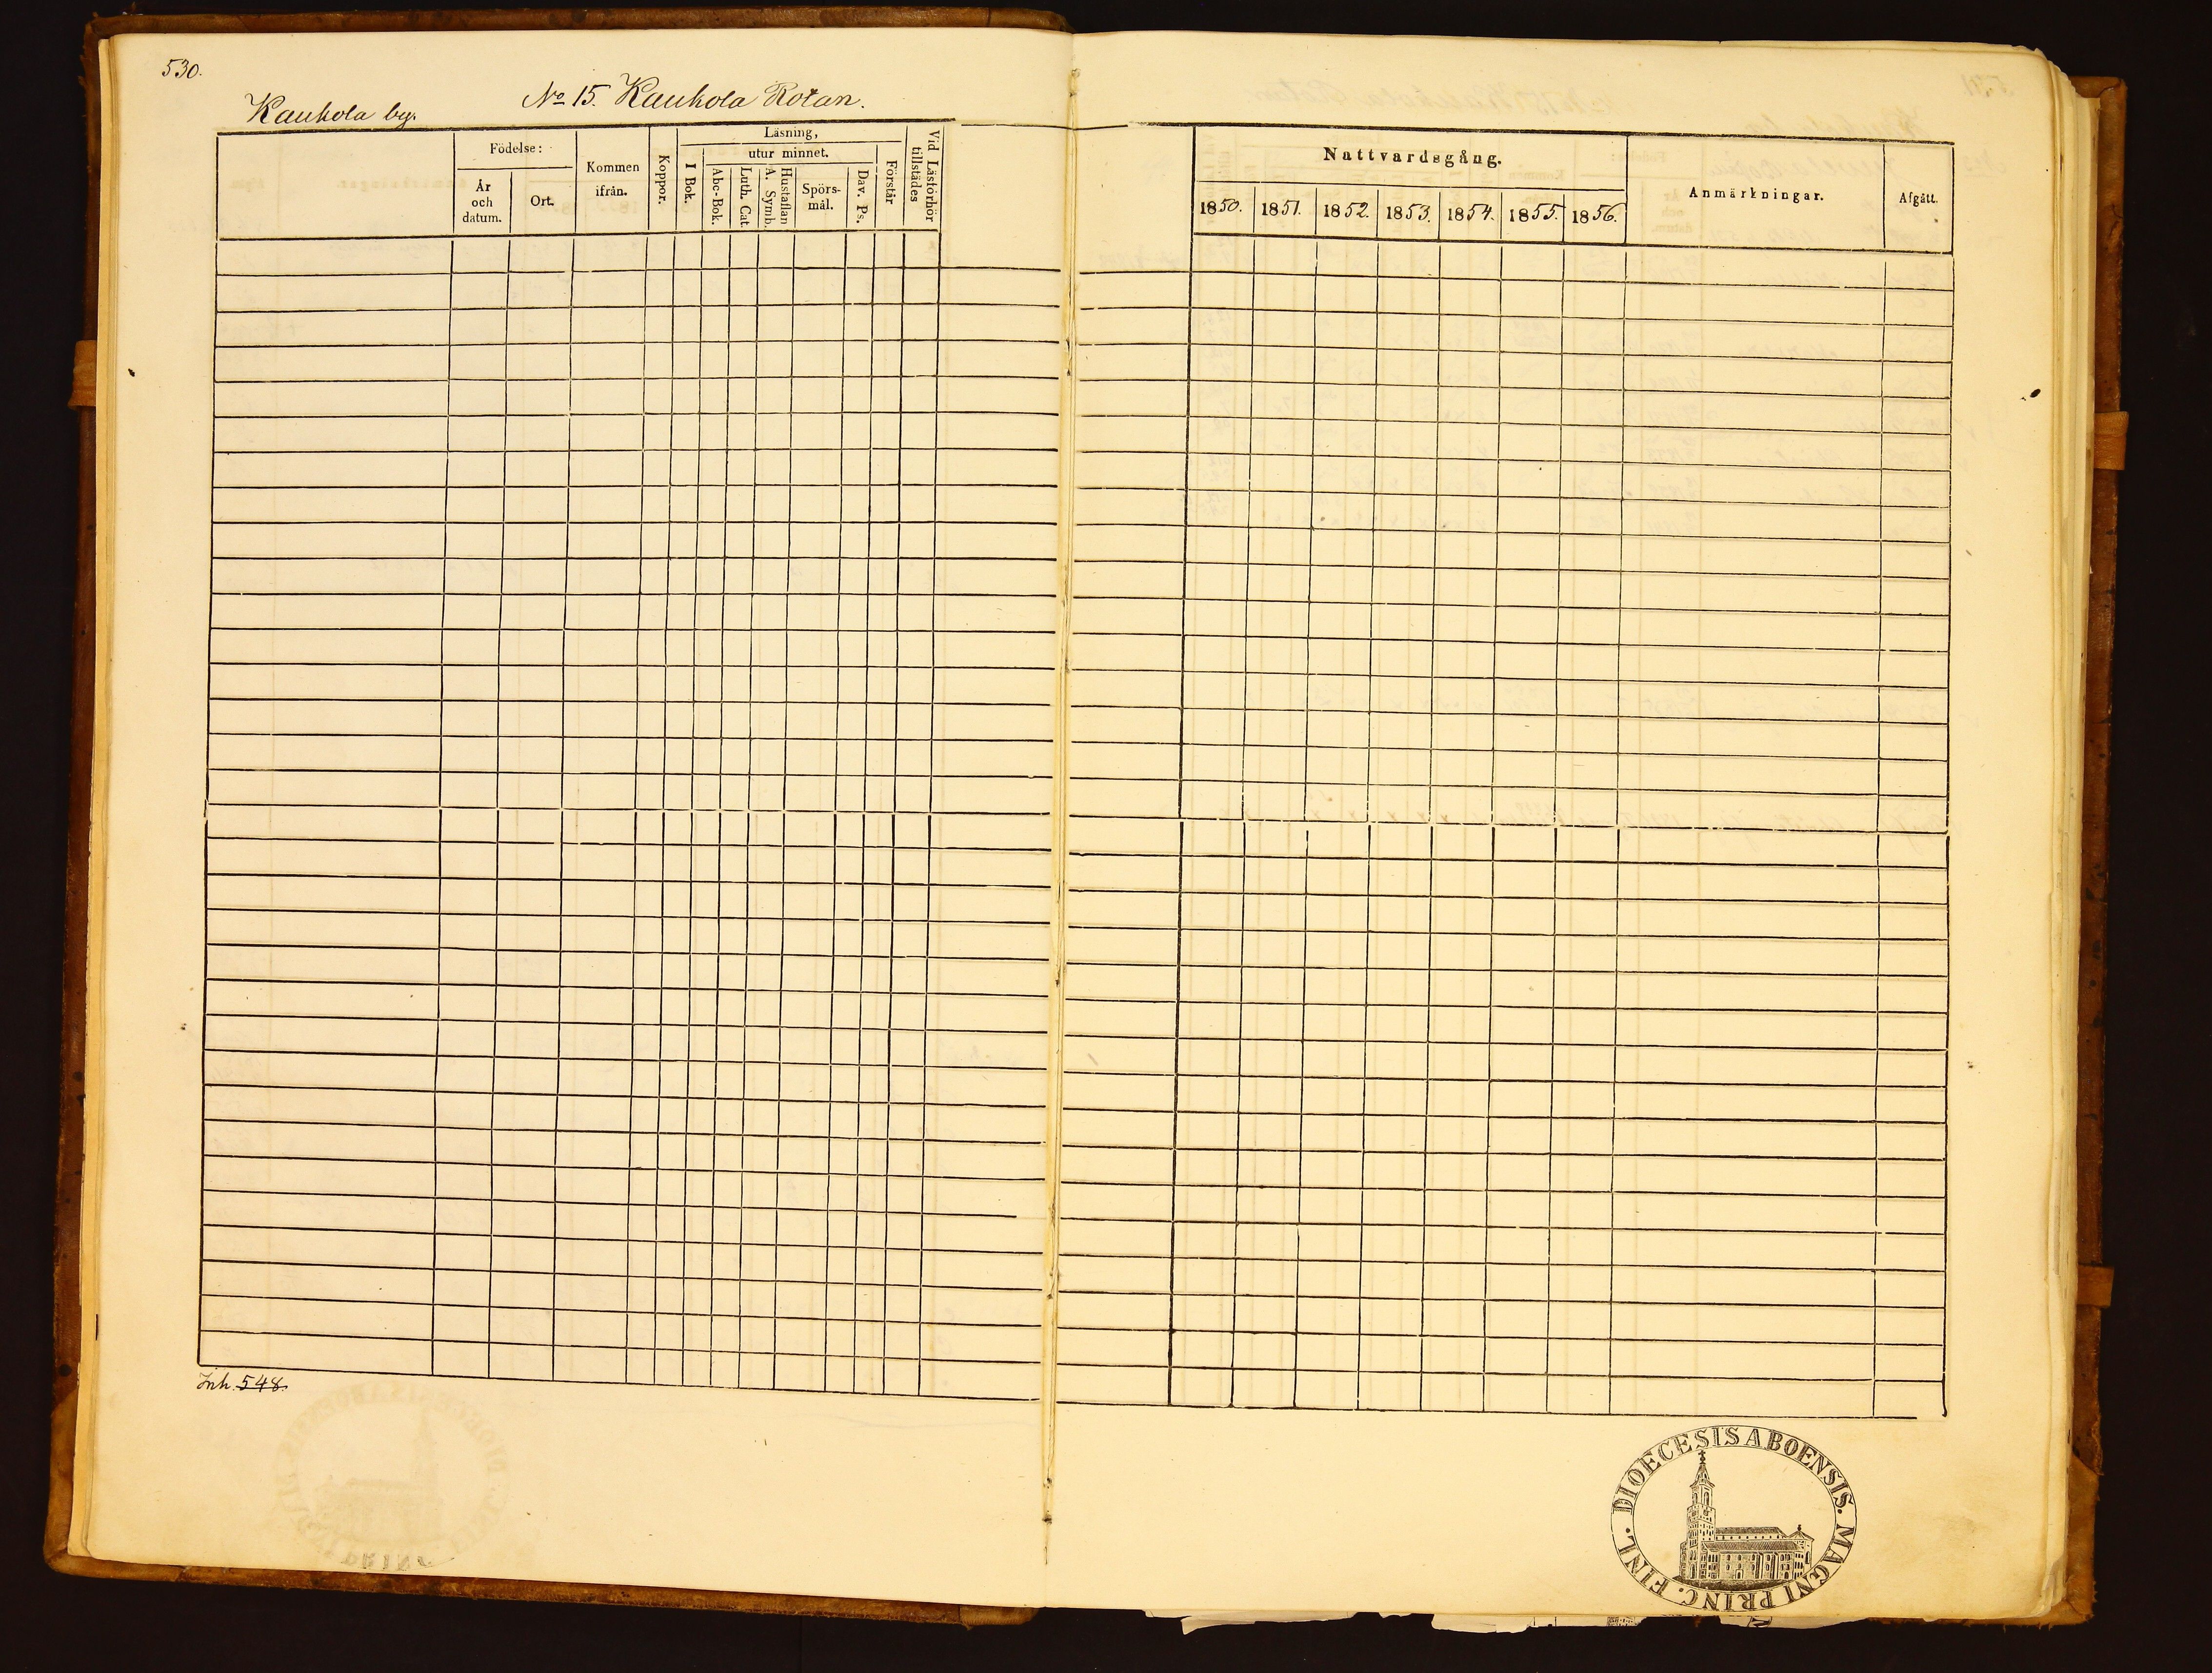 530.
Kaukola by.
No 15. Kaukola Rotan.
Födelse:
År och datum.
Ort.
Kommen ifrån.
Koppor.
Läsning,
I Bok.
utur minnet.
Abc-Bok.
Luth. Cat.
A. Symb.
Hustaflan
Spörs-
mål.
Dav. Ps.
Förstår
Vid Läsförhör
tillstädes
Nattvardsgång.
1850. 1851. 1852. 1853. 1854. 1855. 1856.
Anmärkningar.
Afgått.
Inh. 548.
DIOECESIS ABOENSIS. MAGNI PRINC. FINL.